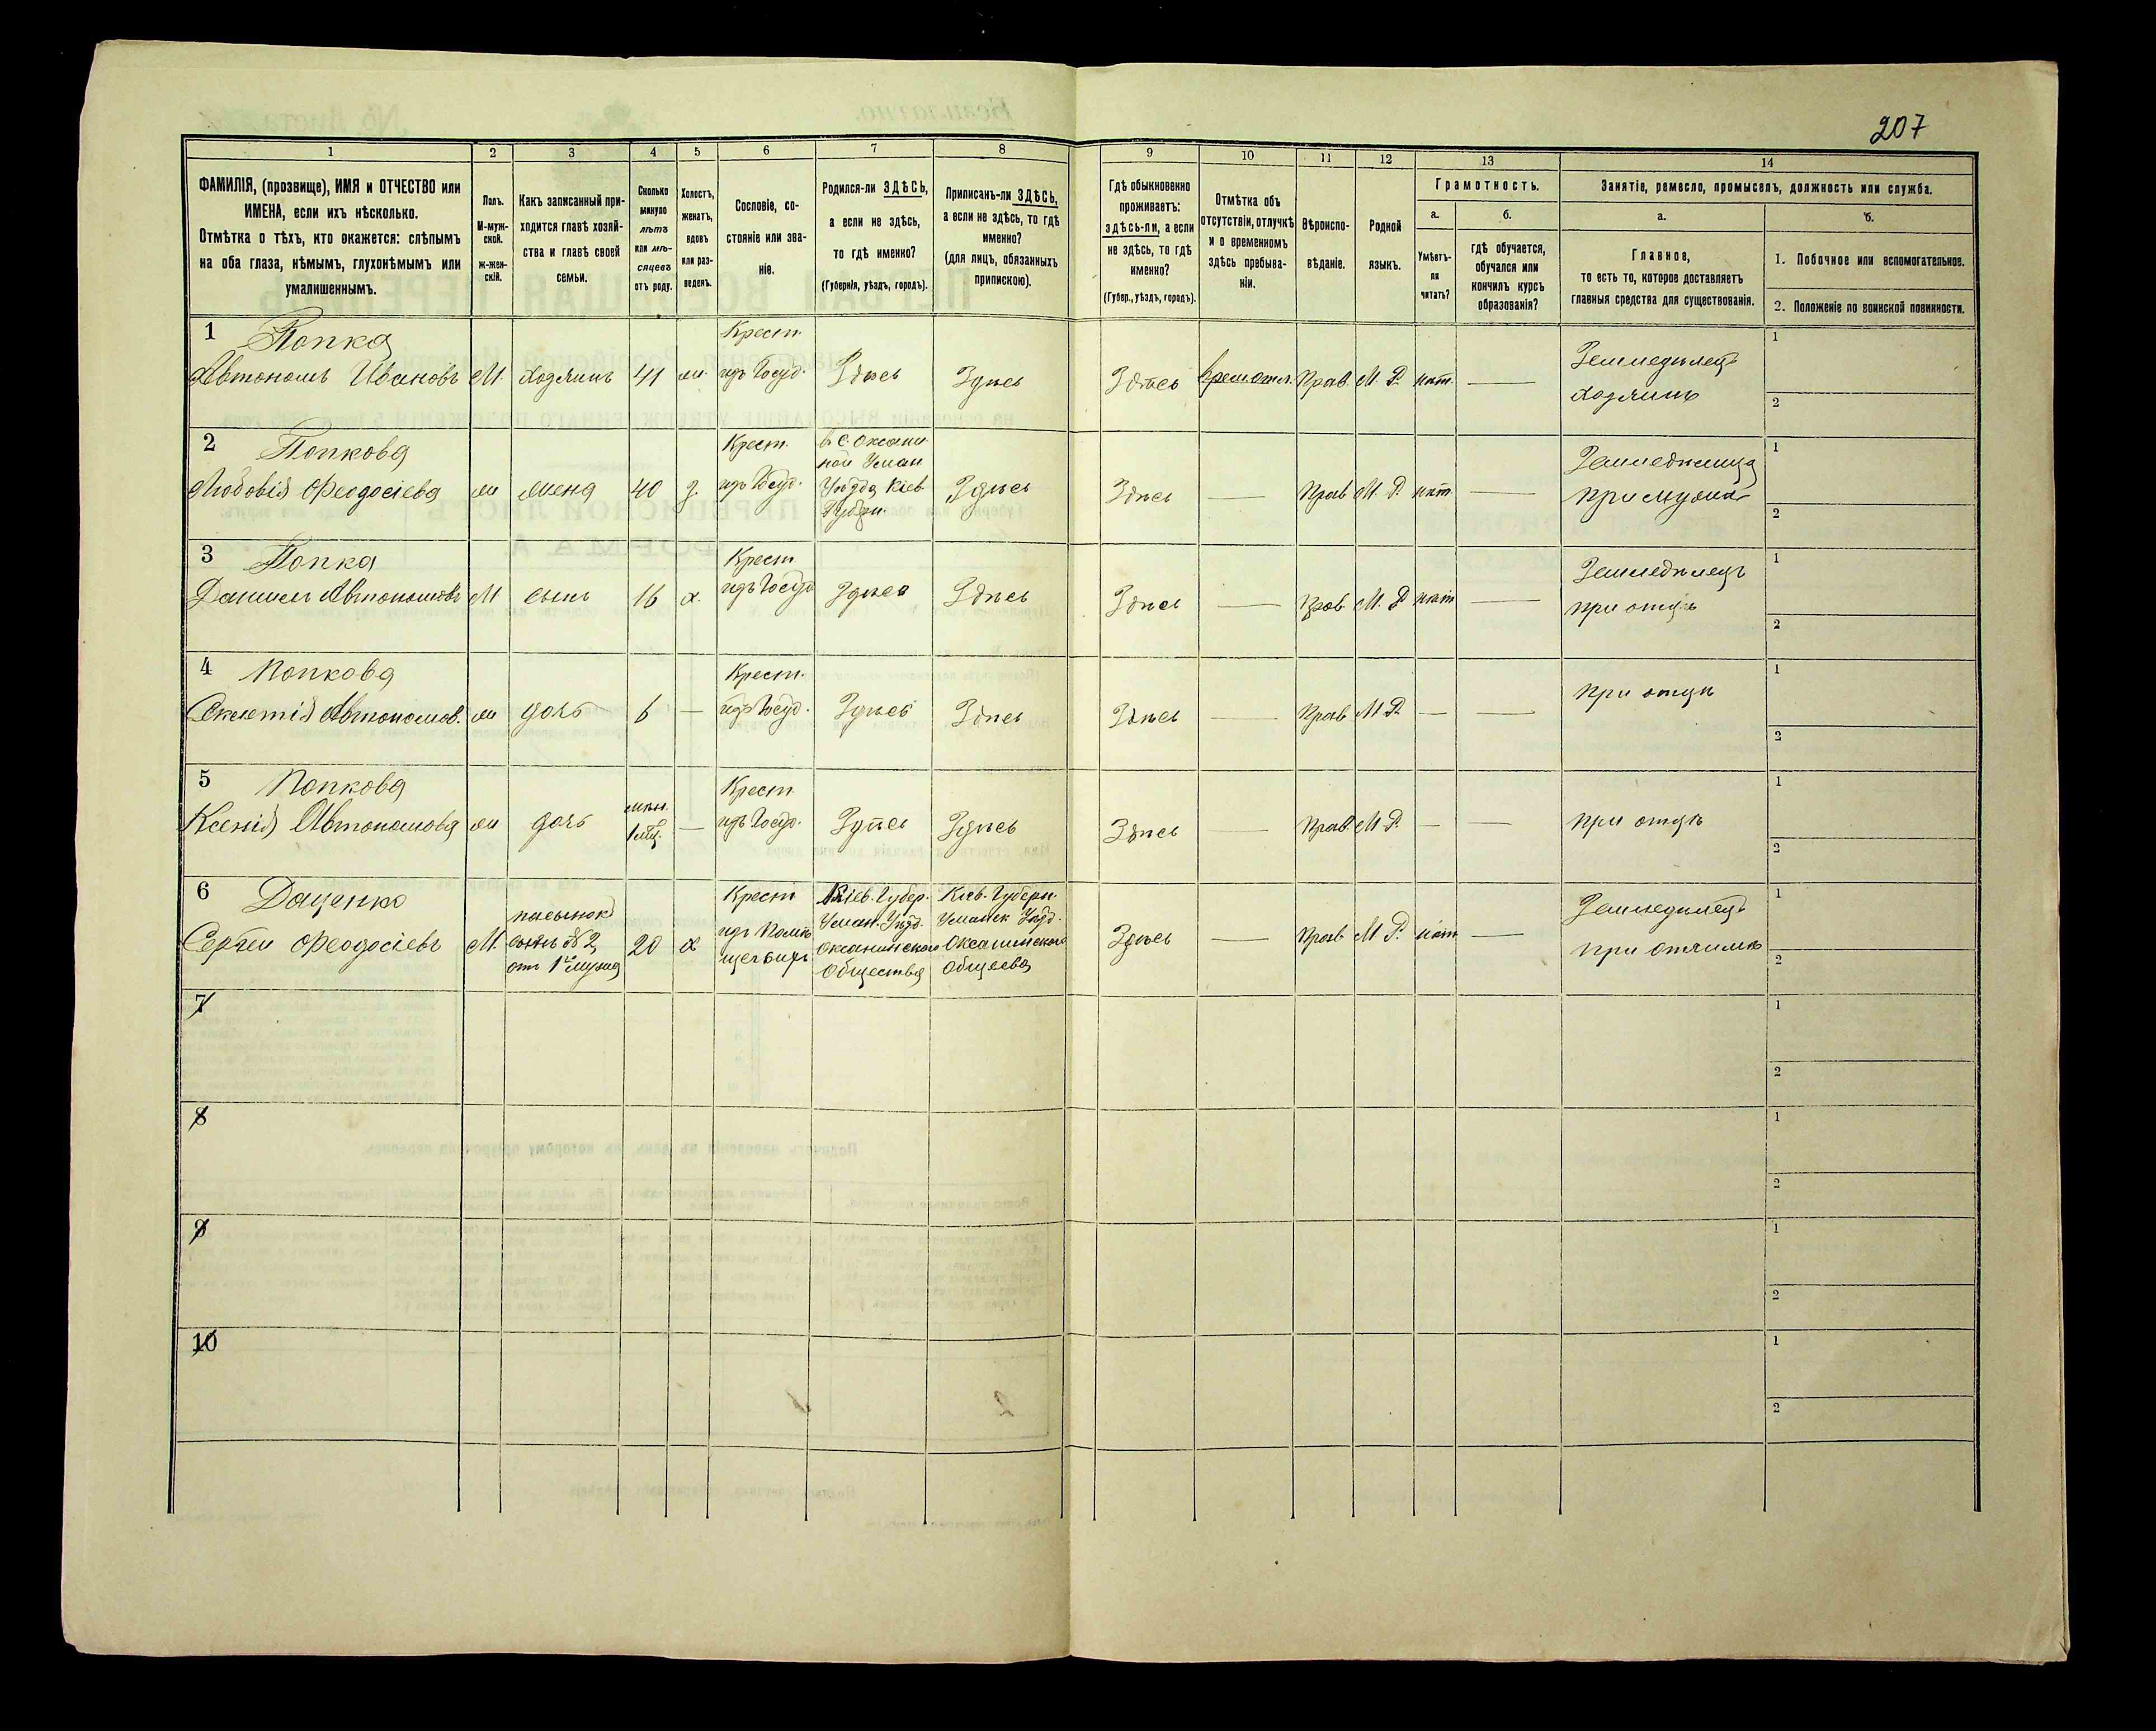 207
1
2
3
4
5
6
7
8
9
10
11
12
13
14
ФАМИЛІЯ, (прозвище), ИМЯ и ОТЧЕСТВО или
ИМЕНА, если ихъ нѣсколько.
Отмѣтка о тѣхъ, кто окажется: слѣпымъ
на оба глаза, нѣмымъ, глухонѣмымъ или
умалишеннымъ.
Полъ.
М-муж-
ской.
ж-жен-
скій.
Какъ записанный при-
ходится главѣ хозяй-
ства и главѣ своей
семьи.
Сколько
минуло
лѣтъ
или мѣ-
сяцевъ
отъ роду.
Холостъ,
женатъ,
вдовъ
или раз-
веденъ.
Сословіе, со-
стояніе или зва-
ніе.
Родился-ли ЗДѢСЬ,
а если не здѣсь,
то гдѣ именно?
(Губернія, уѣздъ, городъ).
Приписанъ-ли ЗДѢСЬ,
а если не здѣсь, то гдѣ
именно?
(для лицъ, обязанныхъ
припискою).
Гдѣ обыкновенно
проживаетъ:
здѣсь-ли, а если
не здѣсь, то гдѣ
именно?
(Губер., уѣздъ, городъ).
Отмѣтка объ
отсутствіи, отлучкѣ
и о временномъ
здѣсь пребыва-
ніи.
Вѣроиспо-
вѣданіе.
Родной
языкъ.
Грамотность.
а.
Умѣетъ-
ли
читать?
б.
гдѣ обучается,
обучался или
кончилъ курсъ
образованія?
Занятіе, ремесло, промыселъ, должность или служба.
а.
Главное,
то есть то, которое доставляетъ
главныя средства для существованія.
б.
1. Побочное или вспомогательное.
2. Положеніе по воинской повинности.
1 Попка
Автономъ Ивановъ
М.
хозяинъ
41
ж.
Крест.
изъ Госуд.
Здѣсь
Здѣсь
Здѣсь
Прав.
М. Р.
нѣт.
Земледѣлец
хозяинъ
1
2
2 Попкова
Любовія Феодосіева
ж
жена
40
з.
Крест.
изъ Госуд.
в С. Оксани
ной Уман
Уѣзда Кіев
Губерн.
Здѣсь
Здѣсь
Прав
М. Р.
нѣт
Земледѣлица
при мужѣ
1
2
3 Попка
Даниил Автономовъ
М
сынъ
16
х.
Крест
изъ Госуд
Здѣсь
Здѣсь
Здѣсь
Прав
М. Р
нѣт
Земледѣлецъ
при отцѣ
1
2
4 Попкова
Автономов.
ж
дочь
6
Крест.
изъ Госуд.
Здѣсь
Здѣсь
Здѣсь
Прав
М Р.
при отцѣ
1
2
5 Попкова
Ксенія Автономова
ж
дочь
1 мѣс.
Крест
изъ Госуд.
Здѣсь
Здѣсь
Здѣсь
Прав.
М. Р.
при отцѣ
1
2
6 Даценко
Сергѣй Феодосіевъ
М.
пасынок
сынъ № 2
от 1го мужа
20
х
Крест
изъ Помѣ
щечьихъ
Кіев. Губер.
Уман. Уѣзд.
Оксанинскаго
Общества
Кіев. Губерн.
Уманск Уѣзд.
Оксанинскаго
Общесва
Здѣсь
Прав
М Р.
нѣт
Земледѣлец
при отчимѣ
1
2
7
1
2
8
1
2
9
1
2
10
1
2